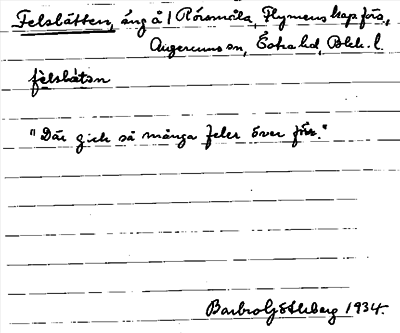 Felslätten, äng å 1 Rörsmåla, Flymens kapförs,
Augerums sn, Östra hd, Blek. l.
fèlslætən
"Där gick så många feler över förr."
Barbro Götheberg 1934.